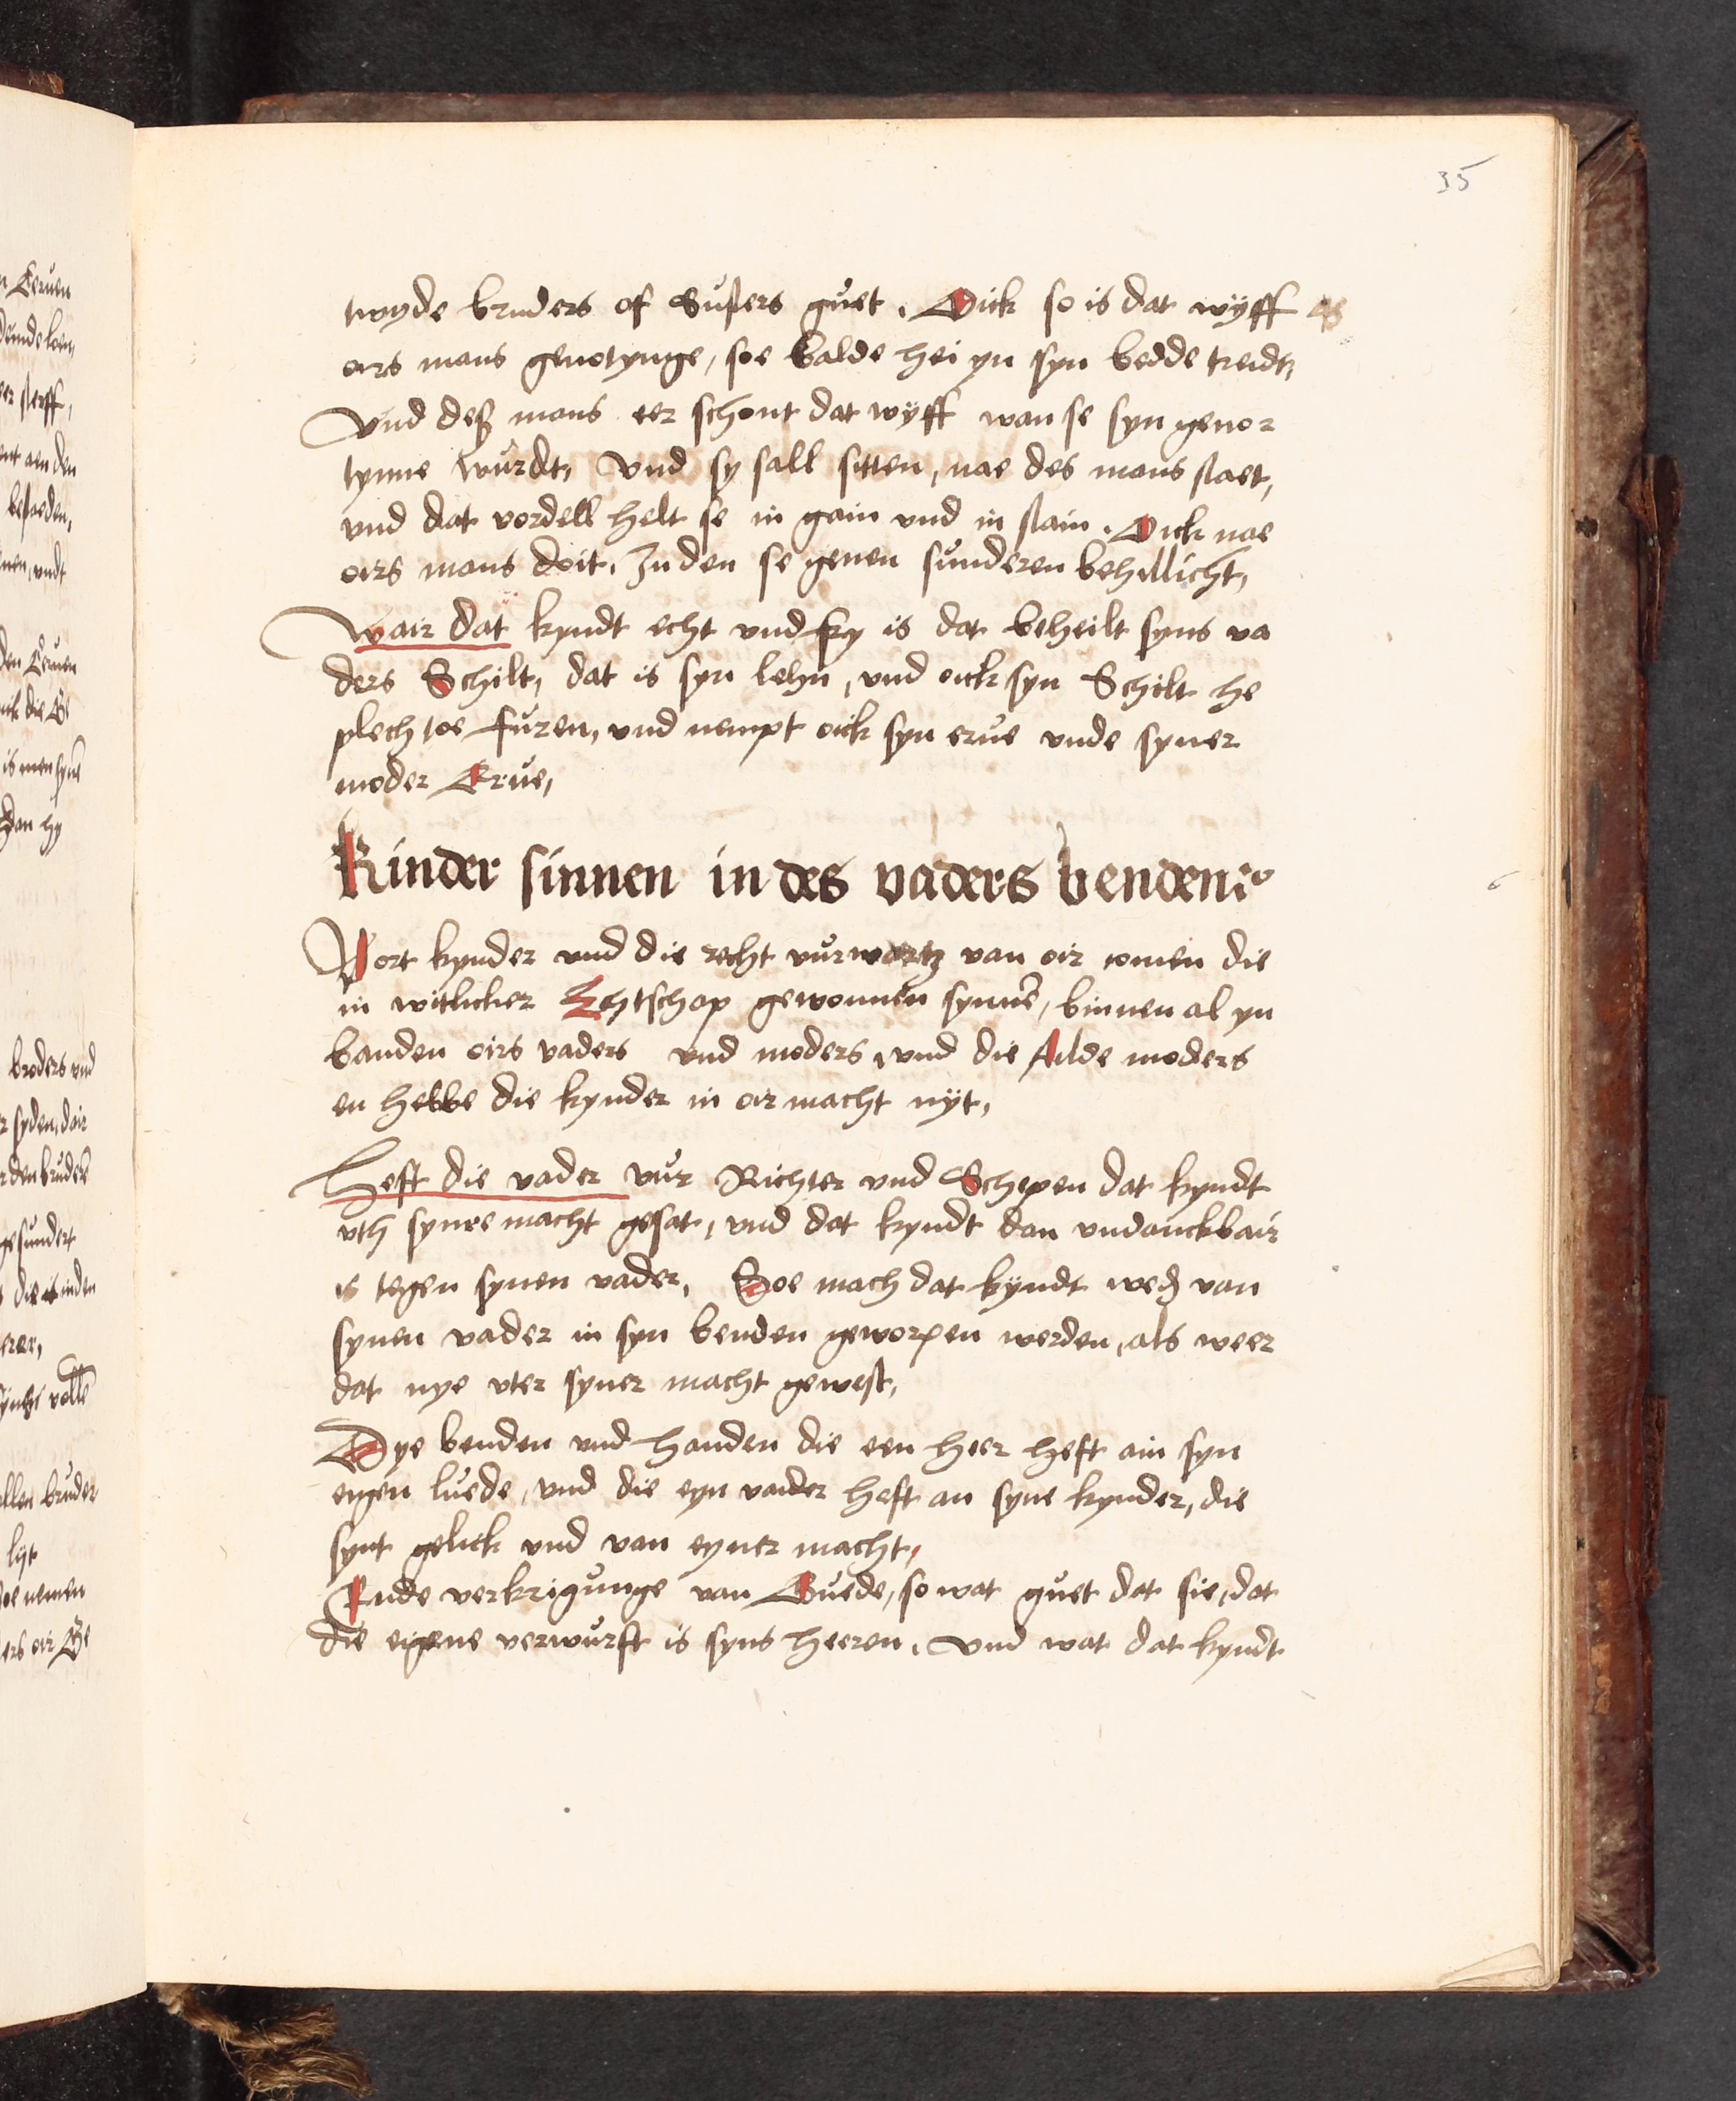 35
twyde bruders of Susters guet. Oick so is dat wÿff
oirs mans genotynge, soe balde hei yn syn bedde treidt,
Vnd deß mans eer schont dat wÿff wan se syn geno-
tynne wurdt, Vnd sy sall sitten, nae des mans staet,
vnd dat vordell helt se in gain vnd in stain. Oick nae
oirs mans doit. Inden se genen sunderen behillicht,
Wair dat kyndt echt vnd fry is dat beheilt syns va
ders Schilt, dat is syn lehn, vnd oick syn Schilt he
plech toe furen, vnd nempt oick syn erue vnde syner
moder Erue,
Kinder sinnen in des vaders bendenn
Vort kynder vnd die recht vurwartz van oir comen die
in witlicker Echtschap gewonnen synnē, binnen al yn
banden oirs vaders vnd moders, vnd die Alde moders
en hebbe die kynder in oir macht nÿt,
Heft die vader vur Richter vnd Schepen dat kyndt
vth synre macht gesat, vnd dat kyndt dan vndanckbair
is tegen synen vader, Soe mach dat kÿndt wed van
synen vader in syn benden geworpen werden, als weer
dat nye vter syner macht gewest,
Dye benden vnd handen die een heer heft ain syn
eygen luede, vnd die eyn vader heft an syne kynder, die
synt gelick vnd van eyner macht,
Ende verkrigunge van Guede, so wat guet dat sie, dat
die eigene verwurft is syns heeren. Vnd wat dat kyndt